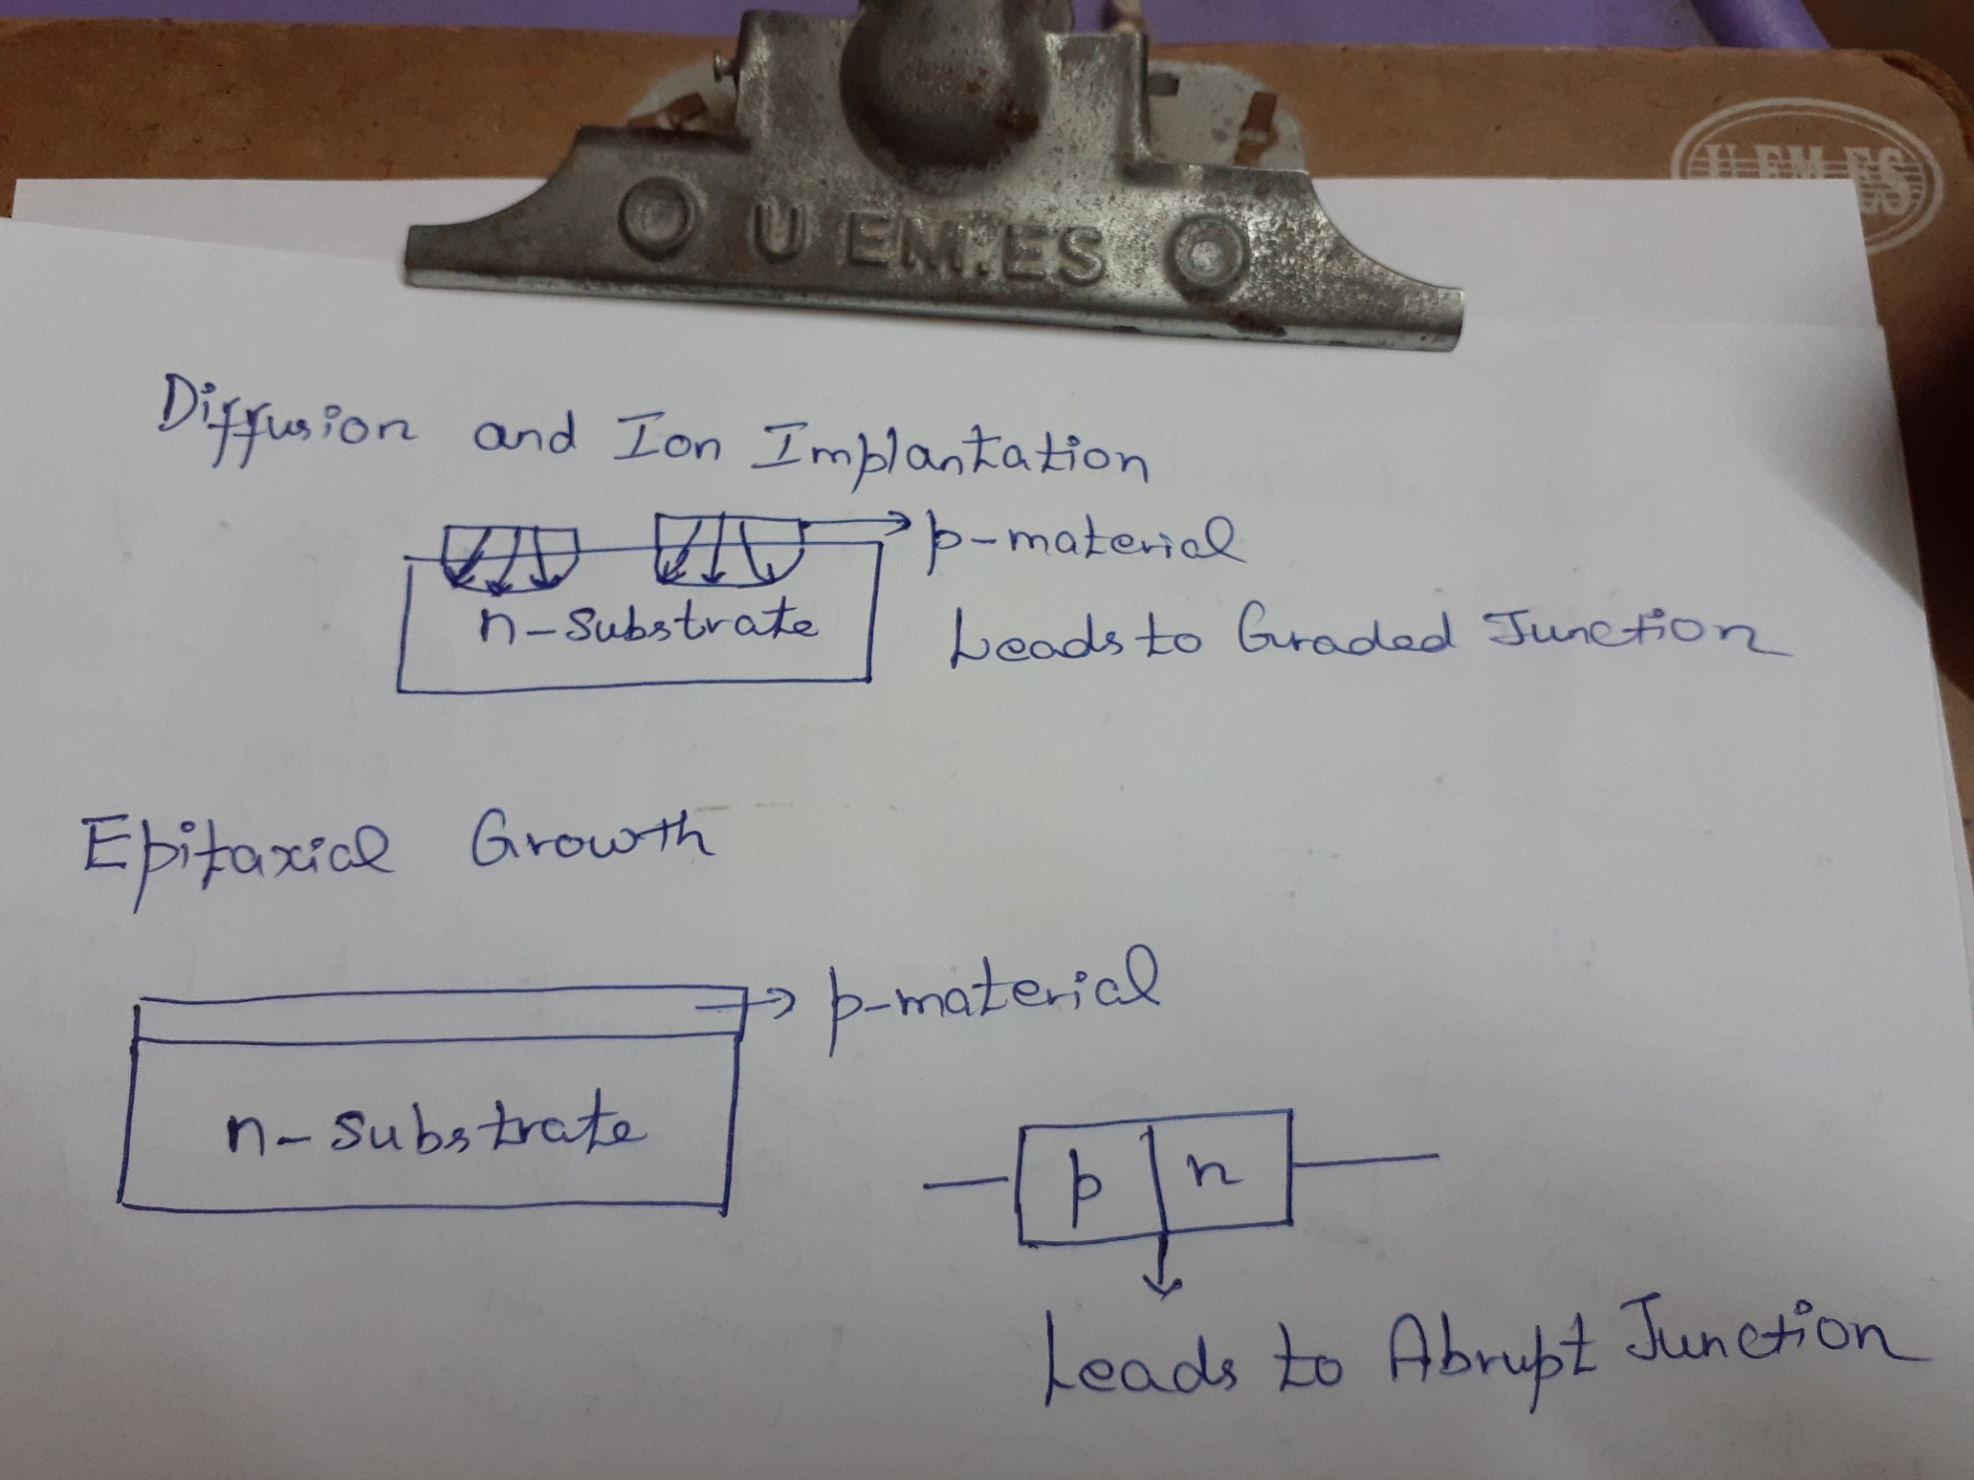 U EM.ES
U.EM.ES
Diffusion and Ion Implantation
p-material
n-substrate
Leads to Graded Junction
Epitaxial Growth
p-material
n-substrate
p n
Leads to Abrupt Junction